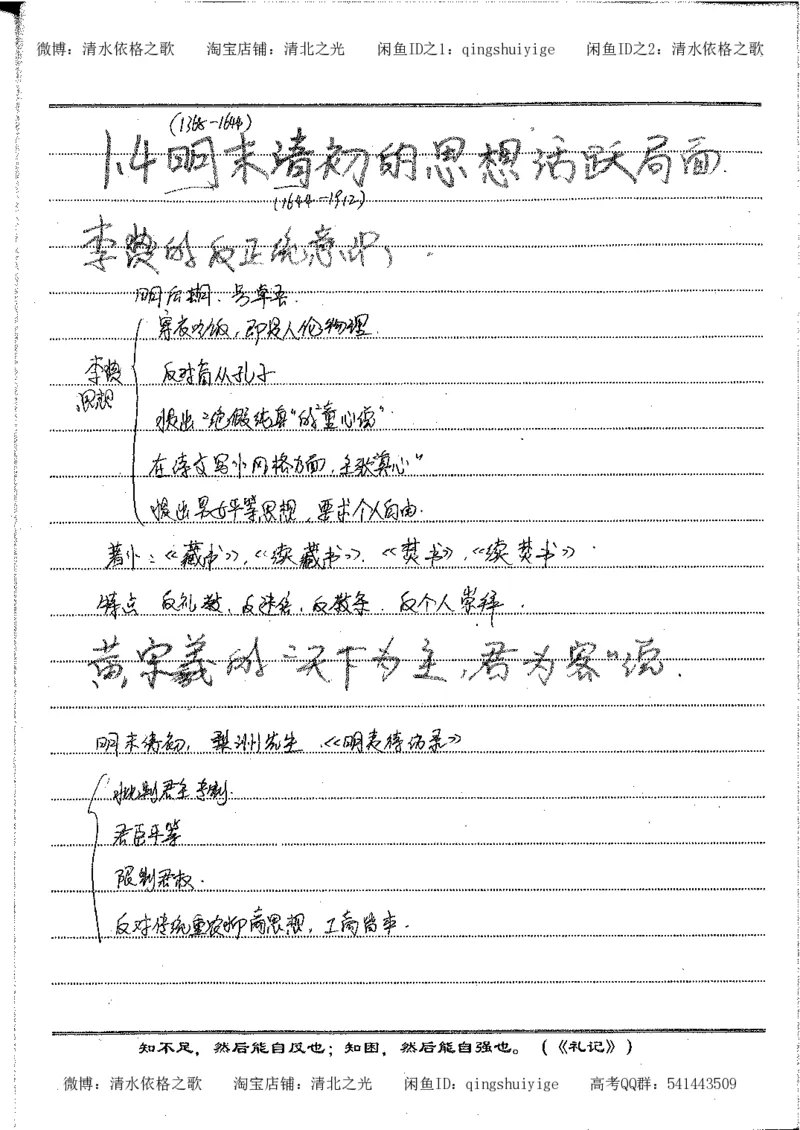 微博：清水依格之歌 淘宝店铺：清北之光 闲鱼ID之1：qingshuiyige 闲鱼ID之2：清水依格之歌
(1368-1644)
1.4 明末清初的思想活跃局面.
(1644-1912)
李贽的反正统意识,
明后期. 号卓吾.
穿衣吃饭，即是人伦物理.
李贽
思想
反对盲从孔子
提出"绝假纯真"的"童心说".
在诗文写作风格方面，主张"真心"
提出男女平等思想，要求个人自由.
著作：《藏书》,《续藏书》.《焚书》,《续焚书》.
特点 反礼教，反迷信，反教条，反个人崇拜.
黄宗羲的"天下为主，君为客"说.
明末清初，梨洲先生.《明夷待访录》
批判君主专制.
君臣平等
限制君权.
反对传统重农抑商思想，工商皆本.
知不足，然后能自反也；知困，然后能自强也。（《礼记》）
微博：清水依格之歌 淘宝店铺：清北之光 闲鱼ID：qingshuiyige 高考QQ群：541443509